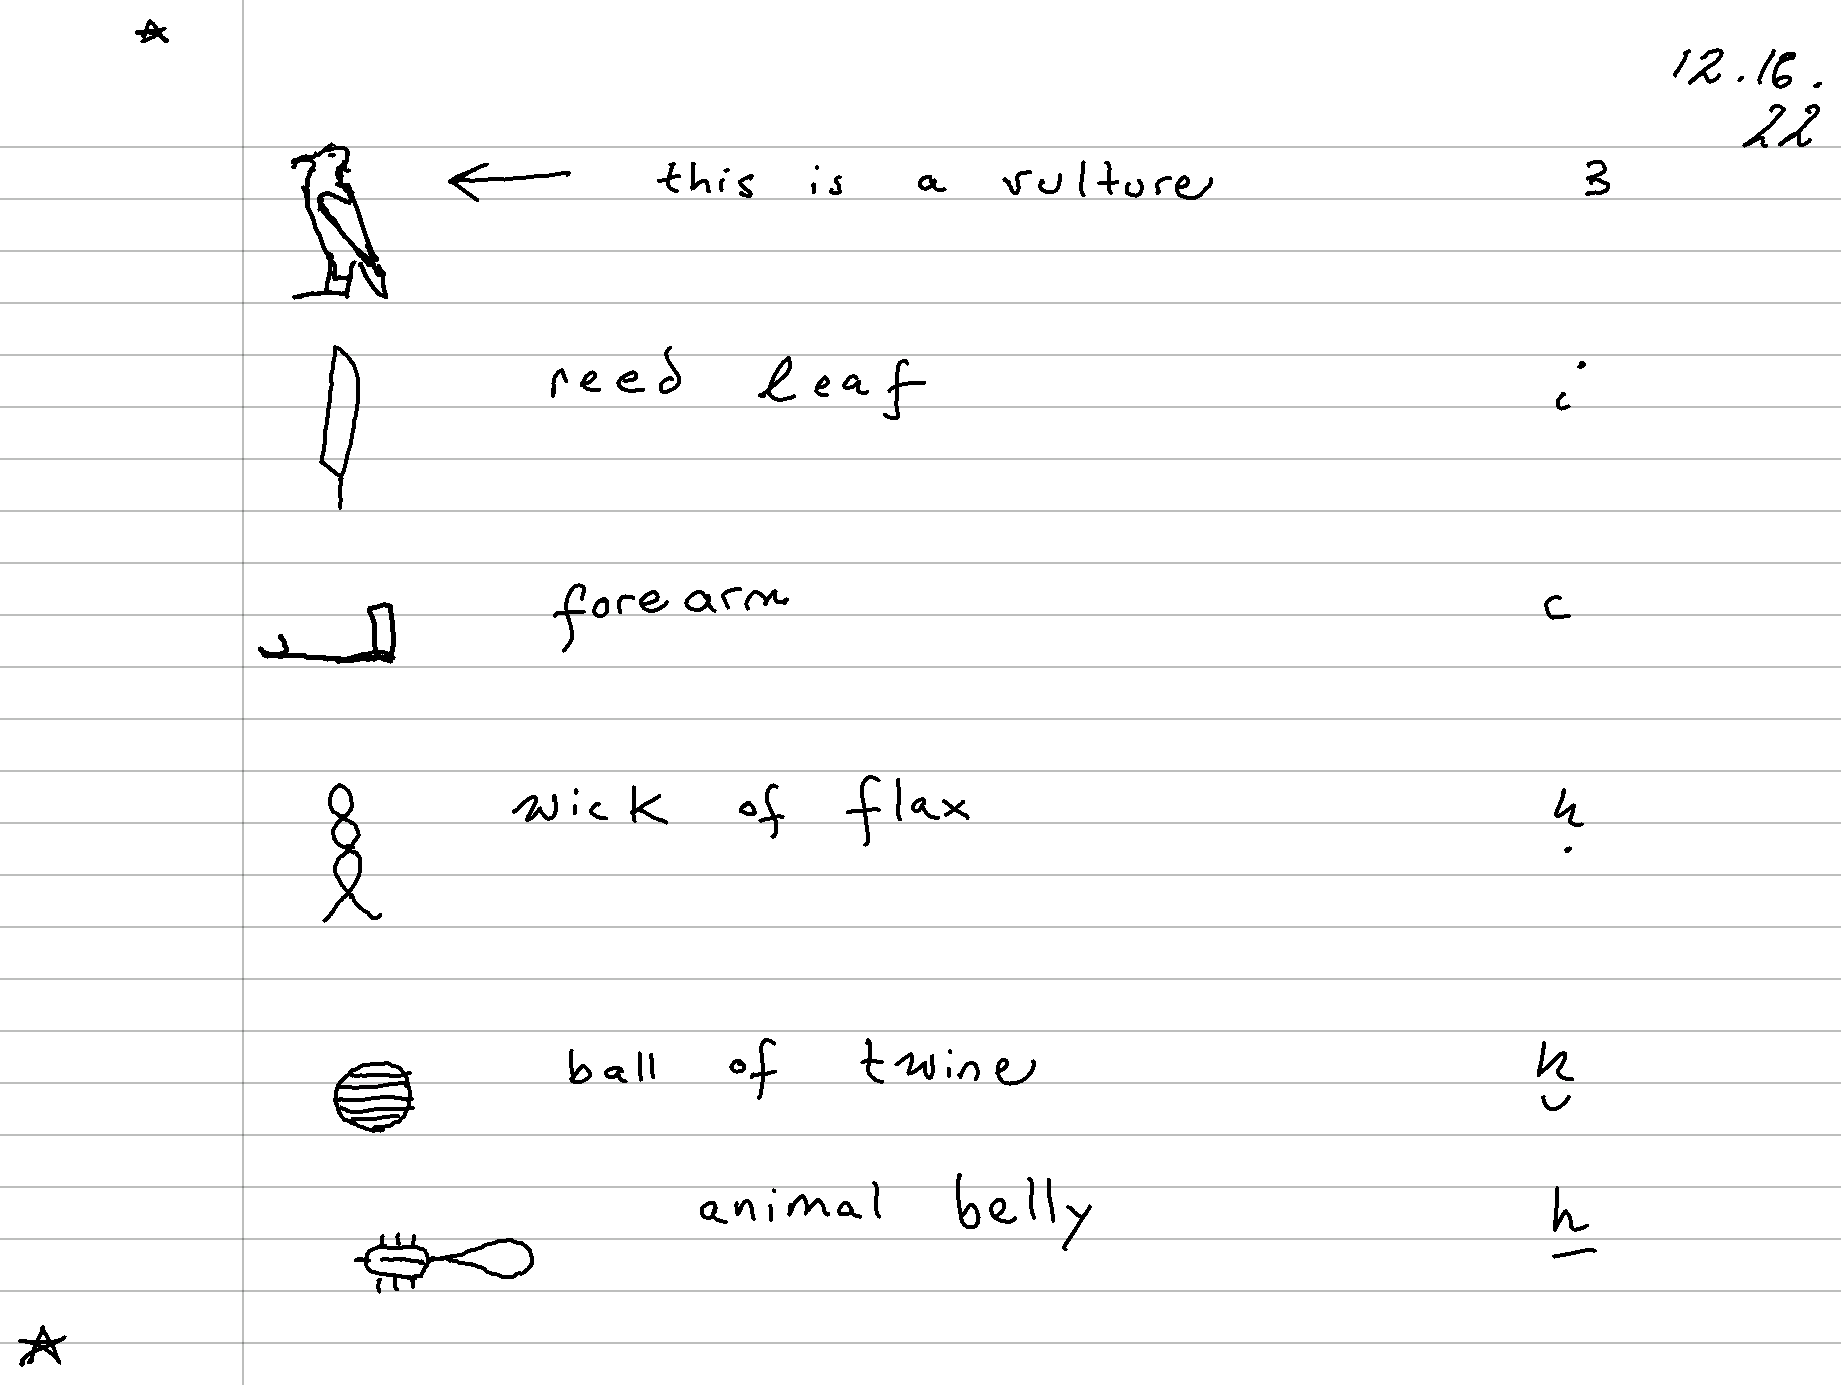 12.16.
22
this is a vulture 3
reed leaf i
forearm c
wick of flax ḥ
ball of twine ḫ
animal belly ẖ